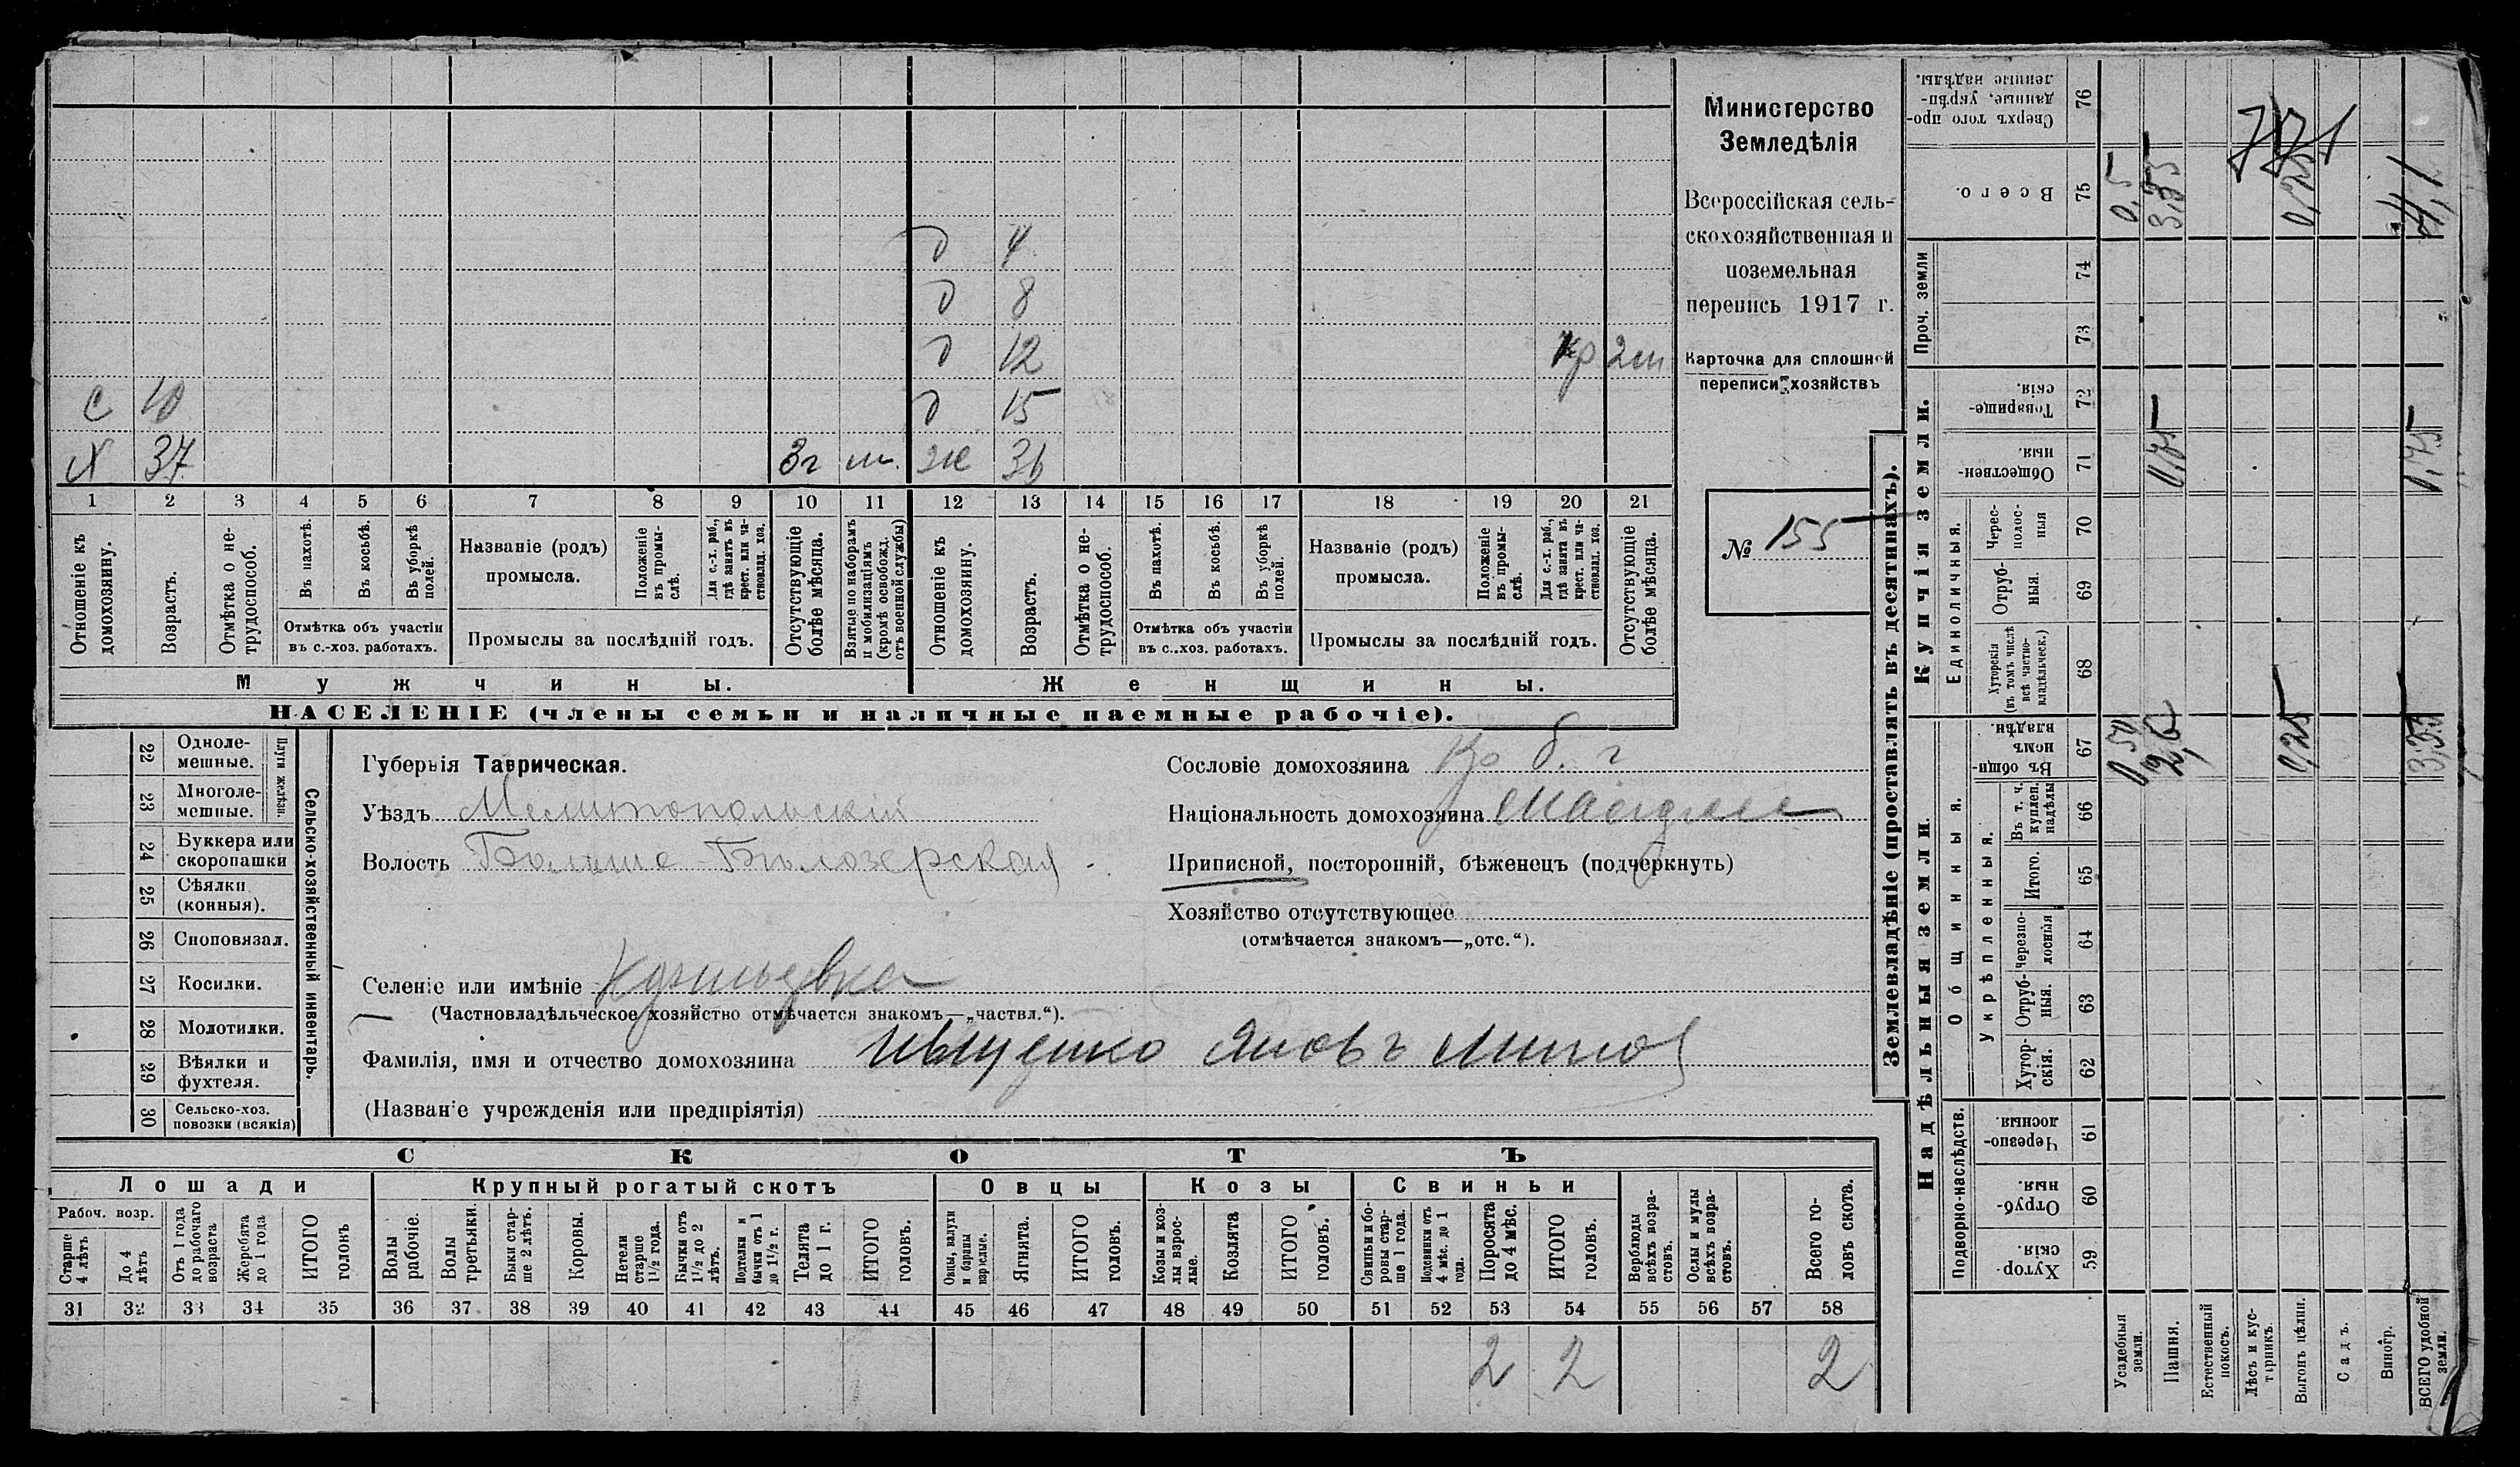 Министерство
Земледѣлія
Всероссійская сель-
скохозяйственная и
поземельная
перепись 1917 г.
Карточка для сплошной
переписи хозяйствъ
№ 155
д 4
д 8
д 12 кр 2 м
С 10 д 15
Х 37 3 г м. ж 36
1 2 3 4 5 6 7 8 9 10 11 12 13 14 15 16 17 18 19 20 21
Отношеніе къ домохозяину.
Возрастъ.
Отмѣтка о не-трудоспособ.
Въ пахотѣ.
Въ косьбѣ.
Въ уборкѣ полей.
Отмѣтка объ участіи
въ с.-хоз. работахъ.
Названіе (родъ)
промысла.
Положеніе въ промы-слѣ.
Для с.-х. раб., гдѣ занятъ въ крест. или ча-стновлад. хоз.
Промыслы за послѣдній годъ.
Отсутствующіе болѣе мѣсяца.
Взятые по наборамъ и мобилизаціямъ (кромѣ освобожд. отъ военной службы)
Отношеніе къ домохозяину.
Возрастъ.
Отмѣтка о не-трудоспособ.
Въ пахотѣ.
Въ косьбѣ.
Въ уборкѣ полей.
Отмѣтка объ участіи
въ с.-хоз. работахъ.
Названіе (родъ)
промысла.
Положеніе въ промы-слѣ.
Для с.-х. раб., гдѣ занята въ крест. или ча-стновлад. хоз.
Промыслы за послѣдній годъ.
Отсутствующіе болѣе мѣсяца.
Мужчины. Женщины.
НАСЕЛЕНІЕ (члены семьи и наличные наемные рабочіе).
Сельско-хозяйственный инвентарь.
Плуги желѣзн.
22 Одноле-мешные.
23 Многоле-мешные.
24 Буккера или скоропашки
25 Сѣялки (конныя).
26 Сноповязал.
27 Косилки.
28 Молотилки.
29 Вѣялки и фухтеля.
30 Сельско-хоз. повозки (всякія)
Губернія Таврическая.
Уѣздъ Мелитопольскій
Волость Больше-Бѣлозерская
Селеніе или имѣніе
(Частновладѣльческое хозяйство отмѣчается знакомъ—„частвл.“).
Фамилія, имя и отчество домохозяина Ивщенко Яковъ
(Названіе учрежденія или предпріятія)
Сословіе домохозяина
Національность домохозяина
Приписной, посторонній, бѣженецъ (подчеркнуть)
Хозяйство отсутствующее
(отмѣчается знакомъ—„отс.“).
СКОТЪ
Лошади Крупный рогатый скотъ Овцы Козы Свиньи
Рабоч. возр.
Старше 4 лѣтъ
До 4 лѣтъ
Отъ 1 года до рабочаго возраста
Жеребята до 1 года
ИТОГО головъ
Волы рабочіе.
Волы третьяки.
Быки стар-ше 2 лѣтъ.
Коровы.
Нетели старше 1½ года.
Бычки отъ 1½ до 2 лѣтъ.
Подтелки и бычки отъ 1 до 1½ г.
Телята до 1 г.
ИТОГО головъ.
Овцы, валухи и бараны взрослые.
Ягнята.
ИТОГО головъ.
Козы и коз-лы взрос-лые.
Козлята
ИТОГО головъ.
Свиньи и бо-ровы стар-ше 1 года.
Подсвинки отъ 4 мѣс. до 1 года.
Поросята до 4 мѣс.
ИТОГО головъ.
Верблюды всѣхъ возра-стовъ.
Ослы и мулы всѣхъ возра-стовъ.
Всего го-ловъ скота.
31 32 33 34 35 36 37 38 39 40 41 42 43 44 45 46 47 48 49 50 51 52 53 54 55 56 57 58
2 2 2
Землевладѣніе (проставлять въ десятинахъ).
Надѣльныя земли. Купчія земли. Проч. земли
Подворно-наслѣдств.
Общинныя.
Укрѣпленныя.
Единоличныя.
59 Хутор-скія.
60 Отруб-ныя.
61 Черезпо-лосныя.
62 Хутор-скія.
63 Отруб-ныя.
64 Черезпо-лосныя
65 Итого.
66 Въ т. ч. куплен. надѣлы
67 Въ общи-номъ владѣн.
68 Хуторскія (въ томъ числѣ всѣ частно-владѣльческ.)
69 Отруб-ныя.
70 Черес-полос-ныя
71 Обществен-ныя.
72 Товарище-скія.
73
74
75 Всего.
76 Сверхъ того про-данные, укрѣп-ленные надѣлы.
Усадебныя земли. 0,5
Пашня. 0,75
Естественный покосъ.
Лѣсъ и кус-тарникъ.
Выгонъ цѣлин. 0,25
Садъ.
Виногр.
ВСЕГО удобной земли. 0,75
771